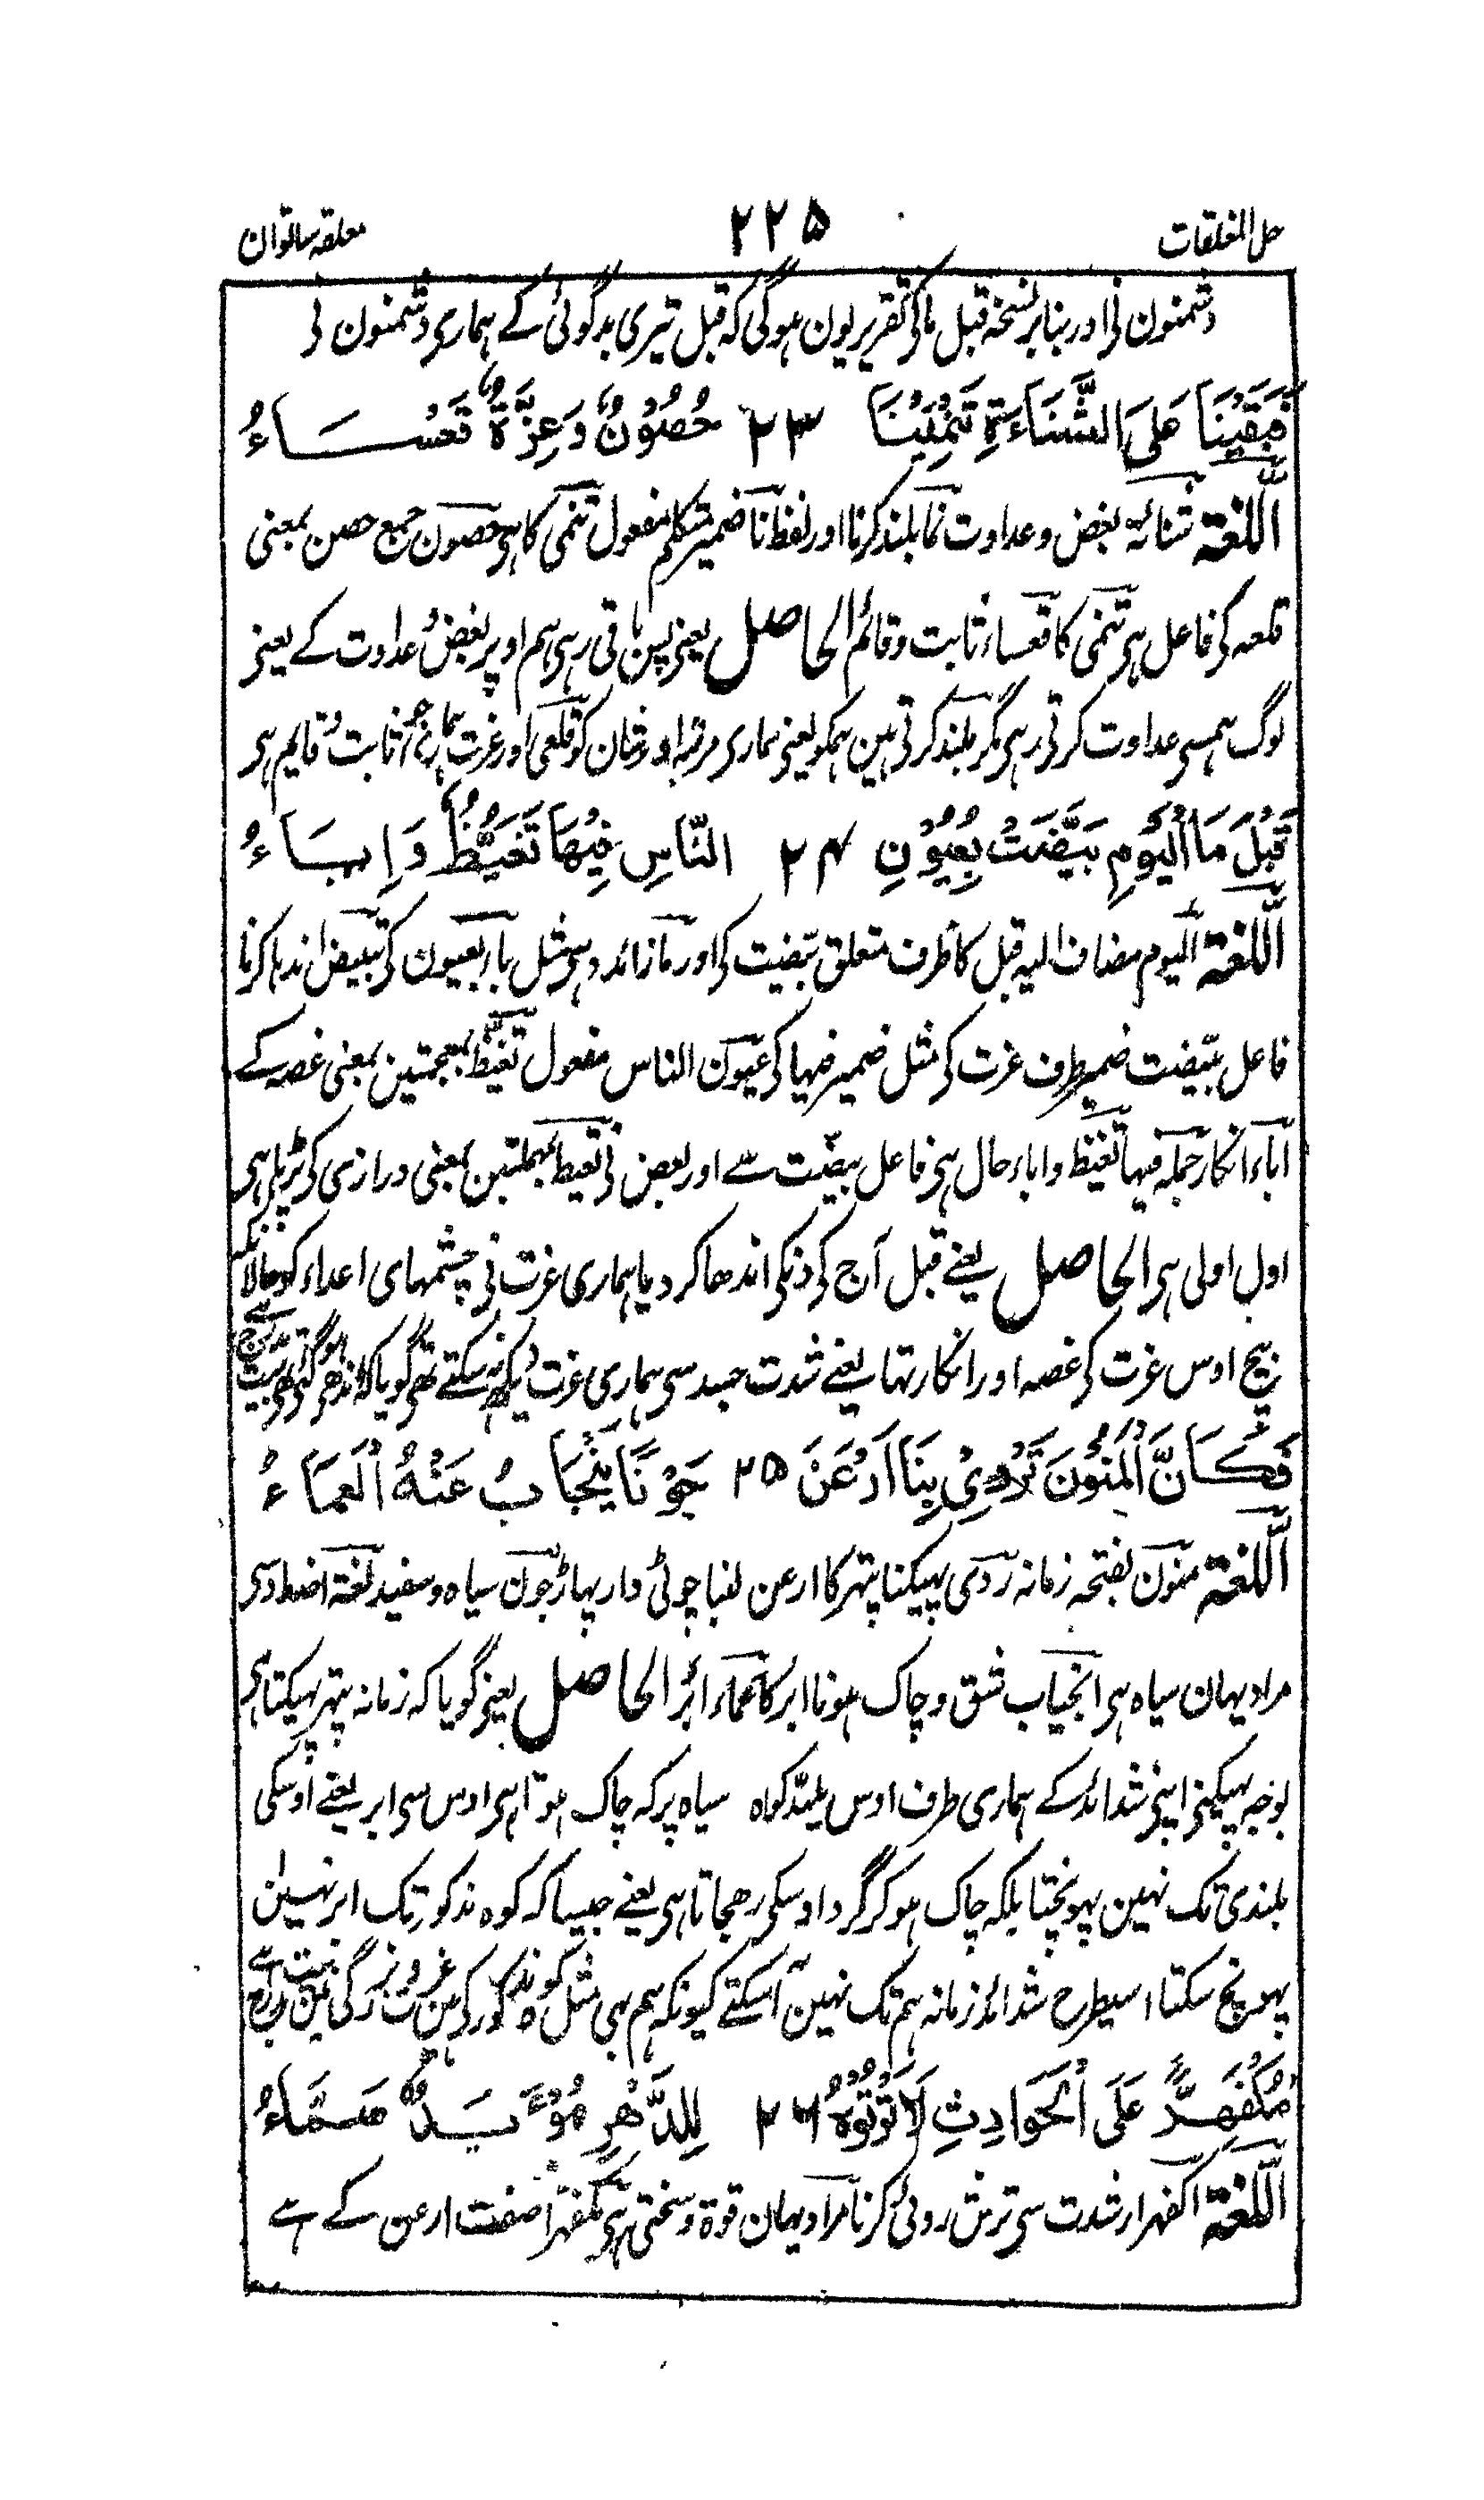 حل المغلقات ۲۲۵ معلقہ ساتوان
دشمنون نی اور بنا بر نسخہ قبل ما کی تقریر یون ہوگی کہ قبل تیری بدگوئی کے ہماری دشمنون نی
فَبَقَيْنَا عَلَى الشَّنَاءَةِ تَنْمِيْنَا ۲۳ حُصُوْنٌ وَعِزَّةٌ قَعْسَاءُ
اللّغۃ شنائۃ بغض و عداوت نما بلند کرنا اور لفظ نا ضمیر متکلم مفعول تنمی کا ہی حصون جمع حصن بمعنی
قلعہ کی فاعل ہی تنمی کا قعساء ثابت و قائم الحاصل یعنی پس باقی رہی ہم اوپر بغض و عداوت کے یعنی
لوگ ہمسی عداوت کرتی رہی مگر بلند کرتی ہین ہمکو یعنی ہماری مرتبہ اور شان کو قلعی اور عزت ہماری جو ثابت و قایم ہی
قَبْلَ مَا الْيَوْمِ بَيَّضَتْ بِعُيُوْنِ ۲۴ النَّاسِ فِيْهَا تَغَيُّظٌ وَاِبَاءُ
اللّغۃ الیوم مضاف الیہ قبل کا ظرف متعلق بیضت کی اور ما زائدہ ہی مثل با بعیون کی تبییض اندہا کرنا
فاعل بیّضت ضمیر طرف عزت کی مثل ضمیر فیہا کی عیون الناس مفعول تغیّظ بمعجمتین بمعنی غصہ کے
اباء انکار جملہ فیہا تغیظ و اباء حال ہی فاعل بیضّت سے اور بعض نی تعیط بمہملتین بمعنی درازی کی پڑہا ہی
اول اولی ہی الحاصل یعنے قبل آج کی دنکی اندھا کر دیا ہماری عزت نی چشمہای اعداء کو حالانکہ
بیچ اوس عزت کی غصہ اور انکار تہا یعنے شدت حسد سی ہماری عزت دیکھ نہ سکتے تھی گویا کہ اندھی ہوگئی تھی
فَكَأَنَّ الْمَنُوْنَ تَرْدِيْ بِنَا اَرْعَنَ ۲۵ جَوْنًا يَنْجَابُ عَنْهُ الْعَمَاءُ
اللّغۃ منون بفتحہ زمانہ ردی پہیکنا پتہر کا ارعن لنبا چوٹی دار پہاڑ جون سیاہ و سفید لغۃ اضداد سی
مراد یہان سیاہ ہی انجیاب شق و چاک ہونا ابر کا عماء ابر الحاصل یعنی گویا کہ زمانہ پتہر پہیکتا ہی
بوجہ پہیکنی اپنی شدائد کے ہماری طرف اوس بلند کوہ سیاہ پر کہ چاک ہوتا ہی اوس سی ابر یعنے اوسکی
بلندی تک نہین پہونچتا بلکہ چاک ہو کر گرد اوسکی رھجاتا ہی یعنے جیسا کہ کوہ مذکور تک ابر نہین
پہونچ سکتا اسیطرح شدائد زمانہ ہم تک نہین آ سکتے کیونکہ ہم بھی مثل کوہ مذکور کی ہین
مُكْفَهِرًّا عَلَى الْحَوَادِثِ لَا تَرْتُوْهُ ۲۶ لِلدَّهْرِ مُؤَيَّدٌ صَمَّاءُ
اللّغۃ اکفہرار شدت سی ترش روئی کرنا مراد یہان قوۃ و سختی ہی مکفہرا صفت ارعن کے ہے